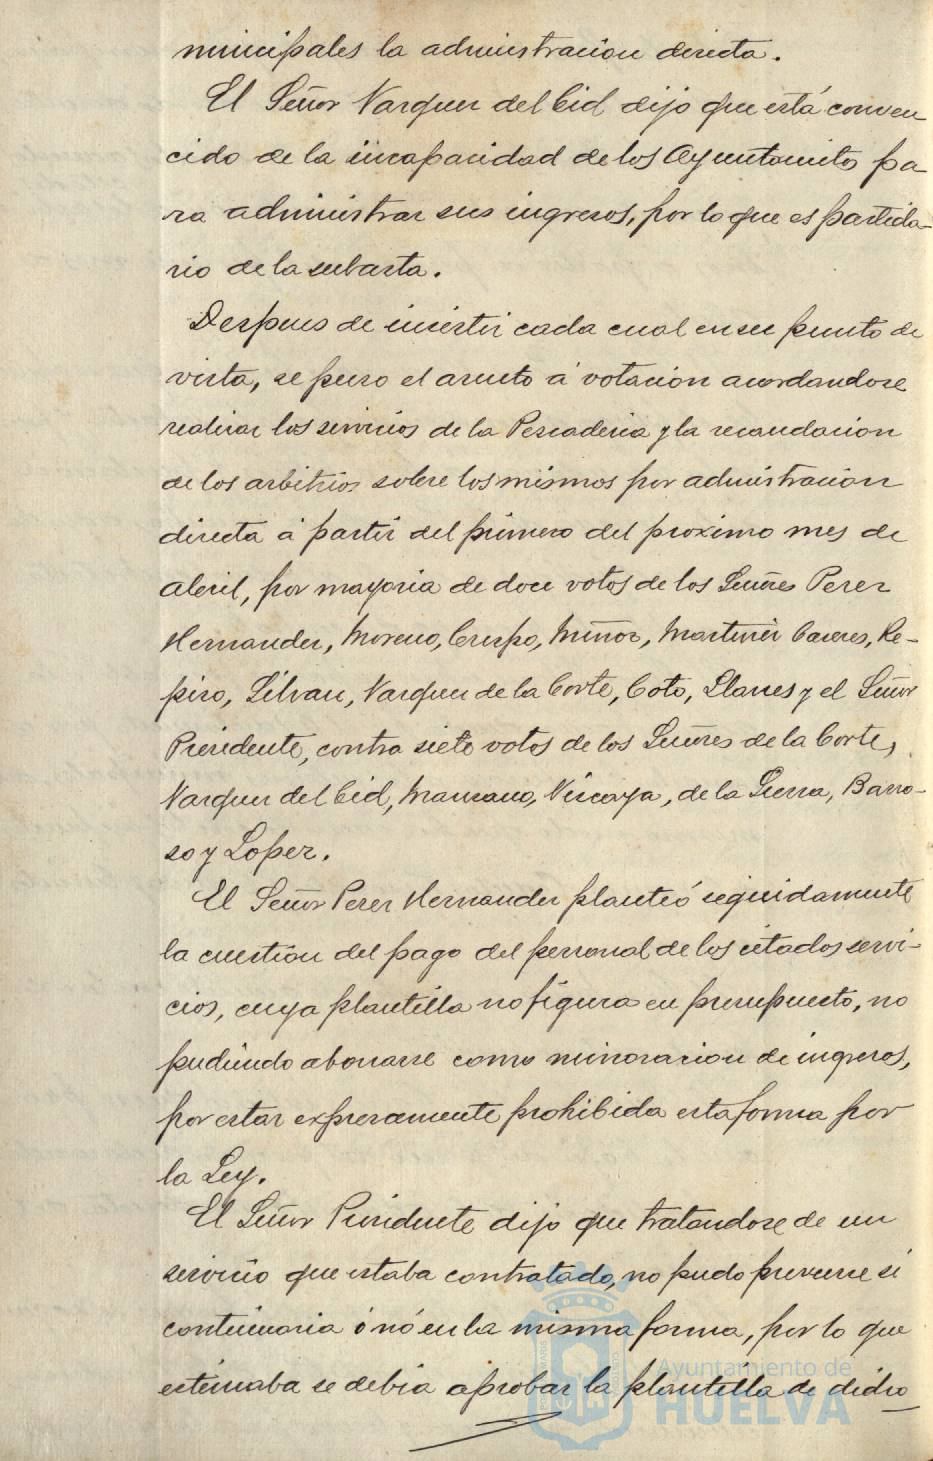 municipales la administracion directa.
El Señor Vazquez del Cid dijo que está conven
cido de la incapacidad de los Ayuntamito pa
ra administrar sus ingresos, por lo que es partida-
rio de la subasta.
Despues de insistir cada cual en su punto de
vista, se puso el asunto á votacion acordandose
realizar los servicios de la Pescaderia y la recaudacion
de los arbitrios sobre los mismos por administracion
directa á partir del primero del proximo mes de
abril, por mayoria de doce votos de los Señores Perez
Hernandez, Moreno, Crespo, Muñoz, Martinez Caceres, Re-
piso, Silvan, Vazquez de la Corte, Coto, Llanes y el Señor
Presidente, contra siete votos de los Señores de la Corte,
Vazquez del Cid, Manzano, Vizcaya, de la Sierra, Barro-
so y Lopez.
El Señor Perez Hernandez planteó seguidamente
la cuestion del pago del personal de los citados servi-
cios, cuya plantilla no figura en presupuesto, no
pudiendo abonarse como minoracion de ingresos,
por estar expresamente prohibida esta forma por
la Ley.
El Señor Presidente dijo que tratandose de un
servicio que estaba contratado, no pudo preverse si
continuaria ó nó en la misma forma, por lo que
estimaba se debia aprobar la plantilla de didho
Ayuntamiento de
HUELVA